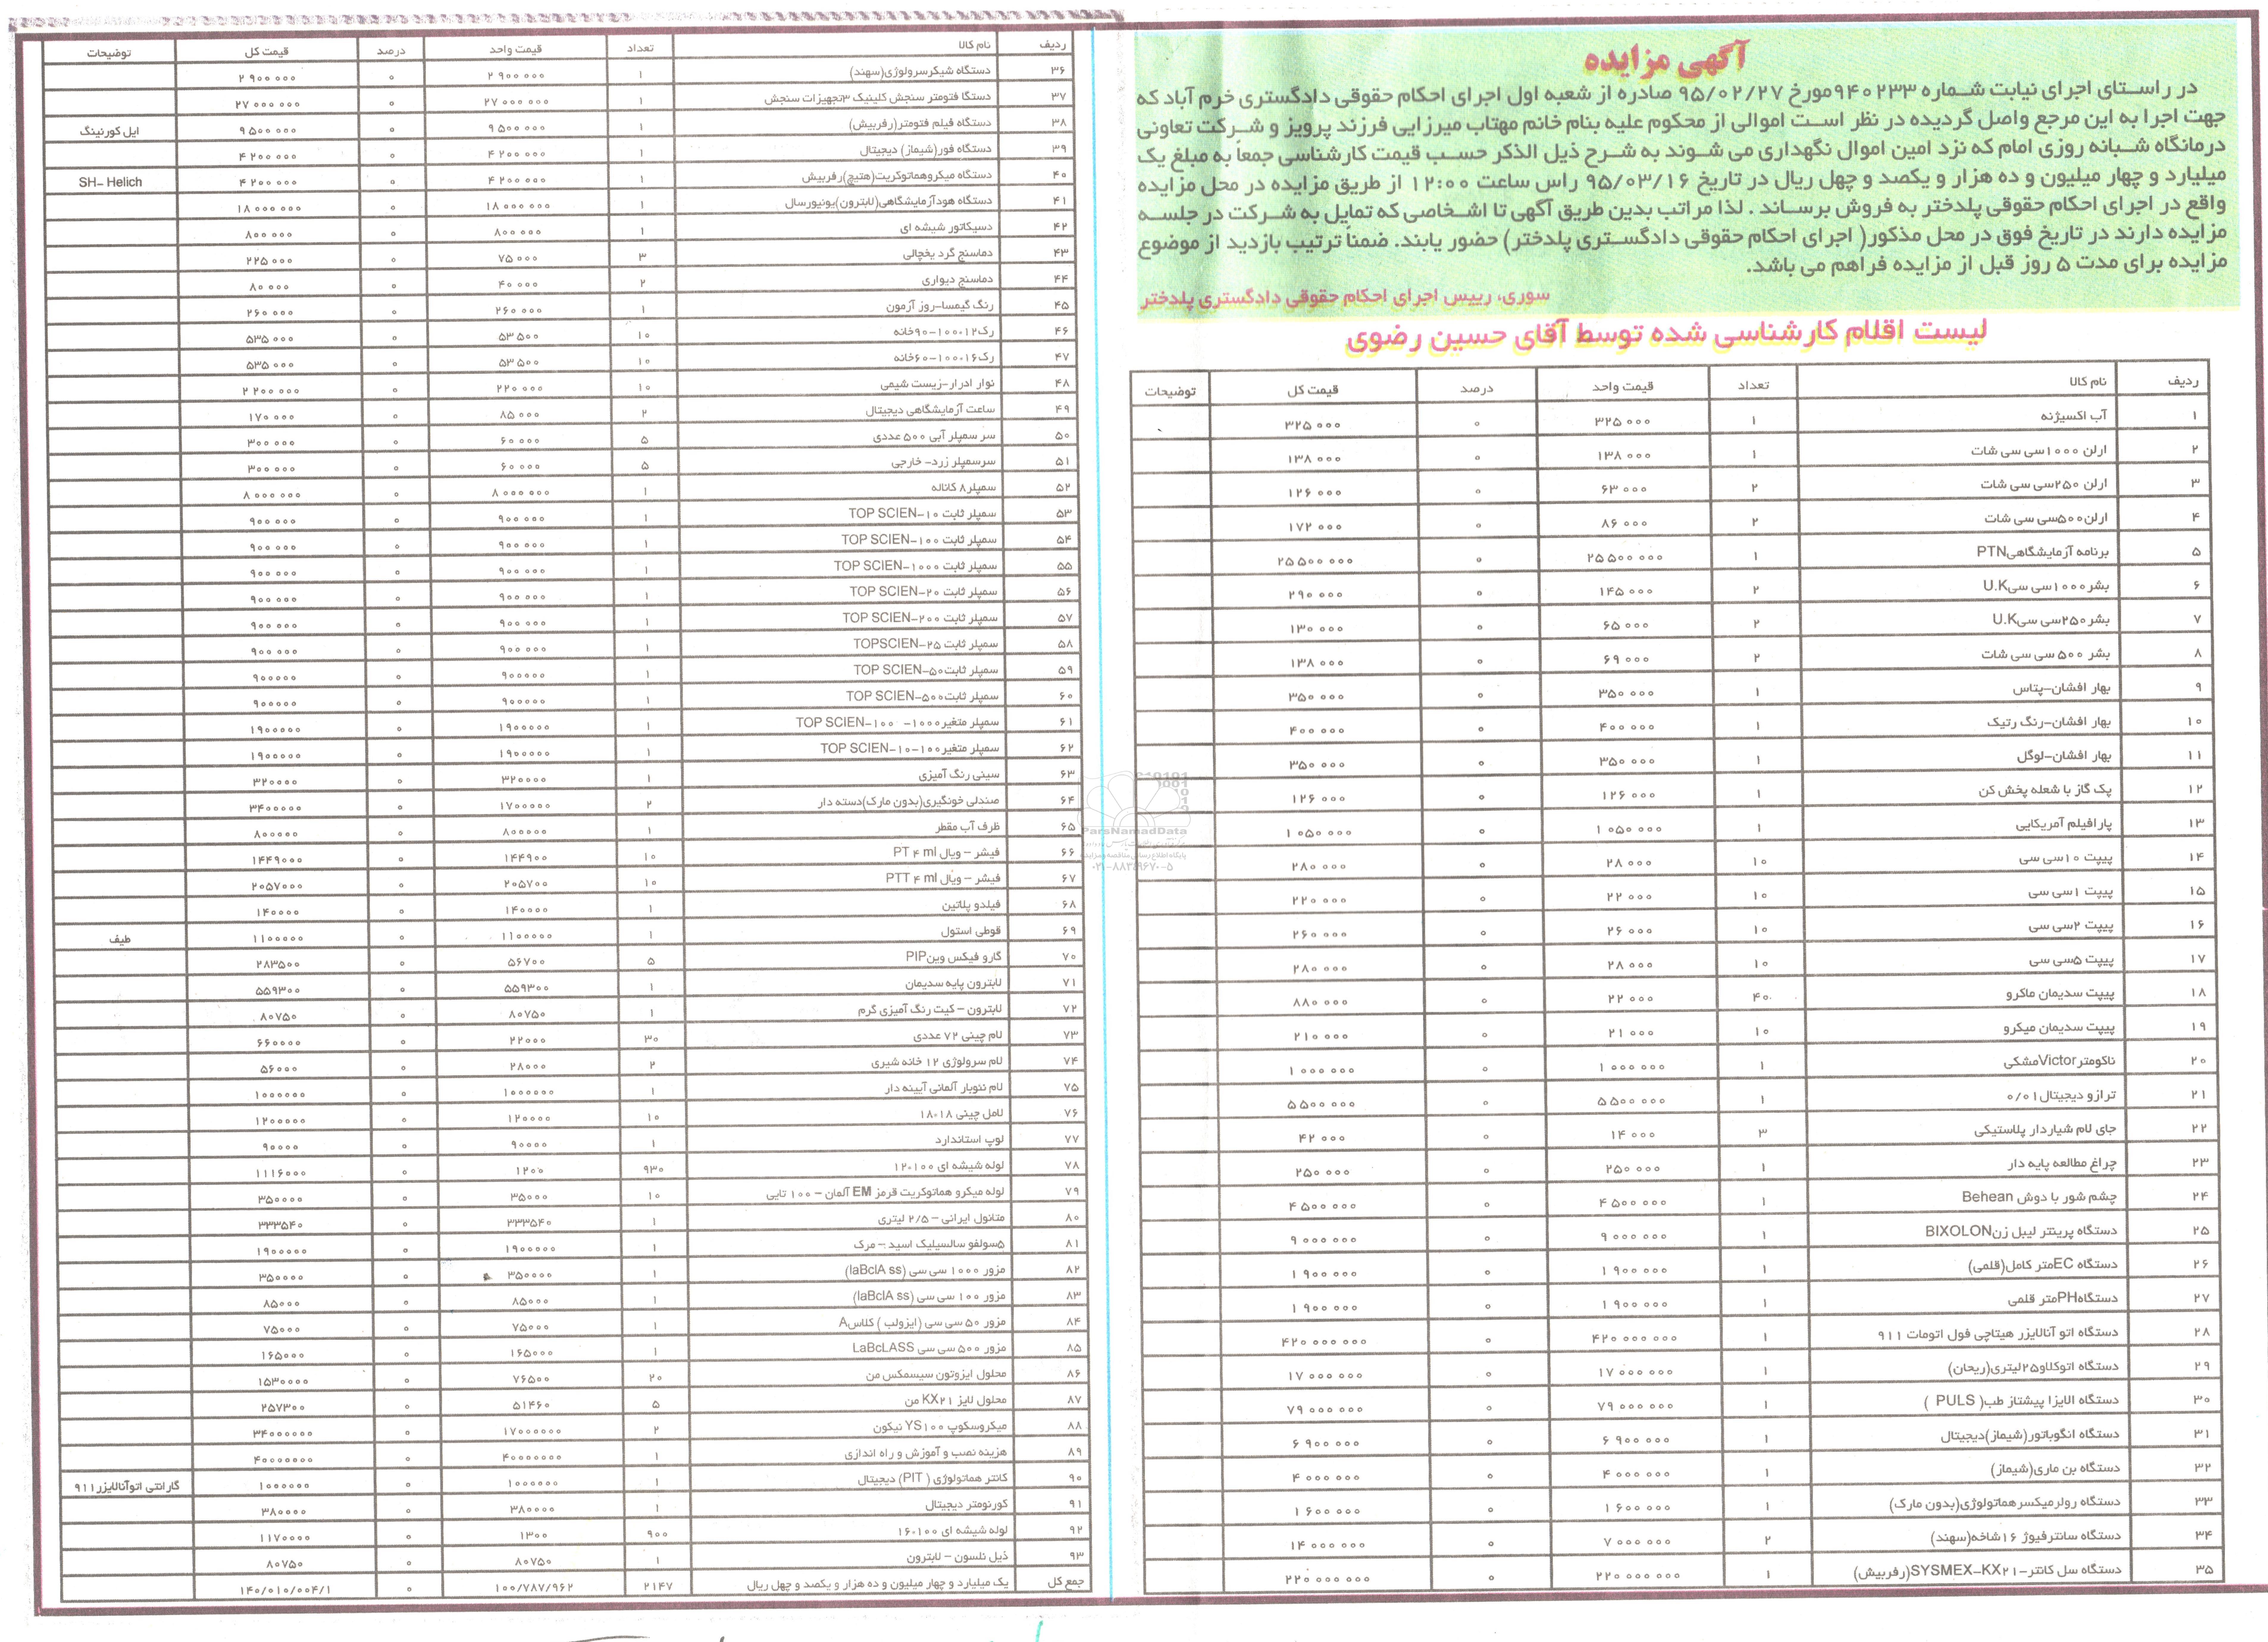 آگهی مزایده
در راستای اجرای نیابت شماره ۹۴۰۲۳۳مورخ ۹۵/۰۲/۲۷ صادره از شعبه اول اجرای احکام حقوقی دادگستری خرم آباد که
جهت اجرا به این مرجع واصل گردیده در نظر است اموالی از محکوم علیه بنام خانم مهتاب میرزایی فرزند پرویز و شرکت تعاونی
درمانگاه شبانه روزی امام که نزد امین اموال نگهداری می شوند به شرح ذیل الذکر حسب قیمت کارشناسی جمعاً به مبلغ یک
میلیارد و چهار میلیون و ده هزار و یکصد و چهل ریال در تاریخ ۹۵/۰۳/۱۶ راس ساعت ۱۲:۰۰ از طریق مزایده در محل مزایده
واقع در اجرای احکام حقوقی پلدختر به فروش برساند . لذا مراتب بدین طریق آگهی تا اشخاصی که تمایل به شرکت در جلسه
مزایده دارند در تاریخ فوق در محل مذکور( اجرای احکام حقوقی دادگستری پلدختر) حضور یابند. ضمناً ترتیب بازدید از موضوع
مزایده برای مدت ۵ روز قبل از مزایده فراهم می باشد.
سوری، رییس اجرای احکام حقوقی دادگستری پلدختر
لیست اقلام کارشناسی شده توسط آقای حسین رضوی
ردیف نام کالا تعداد قیمت واحد درصد قیمت کل توضیحات
۱ آب اکسیژنه ۱ ۳۲۵ ۰۰۰ ۰ ۳۲۵ ۰۰۰
۲ ارلن ۱۰۰۰سی سی شات ۱ ۱۳۸ ۰۰۰ ۰ ۱۳۸ ۰۰۰
۳ ارلن ۲۵۰سی سی شات ۲ ۶۳ ۰۰۰ ۰ ۱۲۶ ۰۰۰
۴ ارلن۵۰۰سی سی شات ۲ ۸۶ ۰۰۰ ۰ ۱۷۲ ۰۰۰
۵ برنامه آزمایشگاهیPTN ۱ ۲۵ ۵۰۰ ۰۰۰ ۰ ۲۵ ۵۰۰ ۰۰۰
۶ بشر۱۰۰۰سی سیU.K ۲ ۱۴۵ ۰۰۰ ۰ ۲۹۰ ۰۰۰
۷ بشر۲۵۰سی سیU.K ۲ ۶۵ ۰۰۰ ۰ ۱۳۰ ۰۰۰
۸ بشر ۵۰۰سی سی شات ۲ ۶۹ ۰۰۰ ۰ ۱۳۸ ۰۰۰
۹ بهار افشان-پتاس ۱ ۳۵۰ ۰۰۰ ۰ ۳۵۰ ۰۰۰
۱۰ بهار افشان-رنگ رتیک ۱ ۴۰۰ ۰۰۰ ۰ ۴۰۰ ۰۰۰
۱۱ بهار افشان-لوگل ۱ ۳۵۰ ۰۰۰ ۰ ۳۵۰ ۰۰۰
۱۲ پک گاز با شعله پخش کن ۱ ۱۲۶ ۰۰۰ ۰ ۱۲۶ ۰۰۰
۱۳ پارافیلم آمریکایی ۱ ۱ ۰۵۰ ۰۰۰ ۰ ۱ ۰۵۰ ۰۰۰
۱۴ پیپت ۱۰سی سی ۱۰ ۲۸ ۰۰۰ ۰ ۲۸۰ ۰۰۰
۱۵ پیپت ۱سی سی ۱۰ ۲۲ ۰۰۰ ۰ ۲۲۰ ۰۰۰
۱۶ پیپت ۲سی سی ۱۰ ۲۶ ۰۰۰ ۰ ۲۶۰ ۰۰۰
۱۷ پیپت ۵سی سی ۱۰ ۲۸ ۰۰۰ ۰ ۲۸۰ ۰۰۰
۱۸ پیپت سدیمان ماکرو ۴۰ ۲۲ ۰۰۰ ۰ ۸۸۰ ۰۰۰
۱۹ پیپت سدیمان میکرو ۱۰ ۲۱ ۰۰۰ ۰ ۲۱۰ ۰۰۰
۲۰ تاکومترVictorمشکی ۱ ۱ ۰۰۰ ۰۰۰ ۰ ۱ ۰۰۰ ۰۰۰
۲۱ ترازو دیجیتال۰/۰۱ ۱ ۵ ۵۰۰ ۰۰۰ ۰ ۵ ۵۰۰ ۰۰۰
۲۲ جای لام شیاردار پلاستیکی ۳ ۱۴ ۰۰۰ ۰ ۴۲ ۰۰۰
۲۳ چراغ مطالعه پایه دار ۱ ۲۵۰ ۰۰۰ ۰ ۲۵۰ ۰۰۰
۲۴ چشم شور با دوش Behean ۱ ۴ ۵۰۰ ۰۰۰ ۰ ۴ ۵۰۰ ۰۰۰
۲۵ دستگاه پرینتر لیبل زنBIXOLON ۱ ۹ ۰۰۰ ۰۰۰ ۰ ۹ ۰۰۰ ۰۰۰
۲۶ دستگاه ECمتر کامل(قلمی) ۱ ۱ ۹۰۰ ۰۰۰ ۰ ۱ ۹۰۰ ۰۰۰
۲۷ دستگاهPHمتر قلمی ۱ ۱ ۹۰۰ ۰۰۰ ۰ ۱ ۹۰۰ ۰۰۰
۲۸ دستگاه اتو آنالایزر هیتاچی فول اتومات ۹۱۱ ۱ ۴۲۰ ۰۰۰ ۰۰۰ ۰ ۴۲۰ ۰۰۰ ۰۰۰
۲۹ دستگاه اتوکلاو۲۵لیتری(ریحان) ۱ ۱۷ ۰۰۰ ۰۰۰ ۰ ۱۷ ۰۰۰ ۰۰۰
۳۰ دستگاه الایزا پیشتاز طب( PULS ) ۱ ۷۹ ۰۰۰ ۰۰۰ ۰ ۷۹ ۰۰۰ ۰۰۰
۳۱ دستگاه انگوباتور(شیماز)دیجیتال ۱ ۶ ۹۰۰ ۰۰۰ ۰ ۶ ۹۰۰ ۰۰۰
۳۲ دستگاه بن ماری(شیماز) ۱ ۴ ۰۰۰ ۰۰۰ ۰ ۴ ۰۰۰ ۰۰۰
۳۳ دستگاه رولرمیکسرهماتولوژی(بدون مارک) ۱ ۱ ۶۰۰ ۰۰۰ ۰ ۱ ۶۰۰ ۰۰۰
۳۴ دستگاه سانترفیوژ ۱۶شاخه(سهند) ۲ ۷ ۰۰۰ ۰۰۰ ۰ ۱۴ ۰۰۰ ۰۰۰
۳۵ دستگاه سل کانتر-SYSMEX-KX۲۱(رفربیش) ۱ ۲۲۰ ۰۰۰ ۰۰۰ ۰ ۲۲۰ ۰۰۰ ۰۰۰
ردیف نام کالا تعداد قیمت واحد درصد قیمت کل توضیحات
۳۶ دستگاه شیکرسرولوژی(سهند) ۱ ۲ ۹۰۰ ۰۰۰ ۰ ۲ ۹۰۰ ۰۰۰
۳۷ دستگا فتومتر سنجش کلینیک ۳تجهیزات سنجش ۱ ۲۷ ۰۰۰ ۰۰۰ ۰ ۲۷ ۰۰۰ ۰۰۰
۳۸ دستگاه فیلم فتومتر(رفربیش) ۱ ۹ ۵۰۰ ۰۰۰ ۰ ۹ ۵۰۰ ۰۰۰ ایل کورنینگ
۳۹ دستگاه فور(شیماز) دیجیتال ۱ ۴ ۲۰۰ ۰۰۰ ۰ ۴ ۲۰۰ ۰۰۰
۴۰ دستگاه میکروهماتوکریت(هتیچ)رفربیش ۱ ۴ ۲۰۰ ۰۰۰ ۰ ۴ ۲۰۰ ۰۰۰ SH- Helich
۴۱ دستگاه هودآزمایشگاهی(لابترون)یونیورسال ۱ ۱۸ ۰۰۰ ۰۰۰ ۰ ۱۸ ۰۰۰ ۰۰۰
۴۲ دسیکاتور شیشه ای ۱ ۸۰۰ ۰۰۰ ۰ ۸۰۰ ۰۰۰
۴۳ دماسنج گرد یخچالی ۳ ۷۵ ۰۰۰ ۰ ۲۲۵ ۰۰۰
۴۴ دماسنج دیواری ۲ ۴۰ ۰۰۰ ۰ ۸۰ ۰۰۰
۴۵ رنگ گیمسا-روز آزمون ۱ ۲۶۰ ۰۰۰ ۰ ۲۶۰ ۰۰۰
۴۶ رک۱۲*۱۰۰-۹۰خانه ۱۰ ۵۳ ۵۰۰ ۰ ۵۳۵ ۰۰۰
۴۷ رک۱۶*۱۰۰-۶۰خانه ۱۰ ۵۳ ۵۰۰ ۰ ۵۳۵ ۰۰۰
۴۸ نوار ادرار-زیست شیمی ۱۰ ۲۲۰ ۰۰۰ ۰ ۲ ۲۰۰ ۰۰۰
۴۹ ساعت آزمایشگاهی دیجیتال ۲ ۸۵ ۰۰۰ ۰ ۱۷۰ ۰۰۰
۵۰ سر سمپلر آبی ۵۰۰ عددی ۵ ۶۰ ۰۰۰ ۰ ۳۰۰ ۰۰۰
۵۱ سرسمپلر زرد- خارجی ۵ ۶۰ ۰۰۰ ۰ ۳۰۰ ۰۰۰
۵۲ سمپلر۸ کاناله ۱ ۸ ۰۰۰ ۰۰۰ ۰ ۸ ۰۰۰ ۰۰۰
۵۳ سمپلر ثابت TOP SCIEN-۱۰ ۱ ۹۰۰ ۰۰۰ ۰ ۹۰۰ ۰۰۰
۵۴ سمپلر ثابت TOP SCIEN-۱۰۰ ۱ ۹۰۰ ۰۰۰ ۰ ۹۰۰ ۰۰۰
۵۵ سمپلر ثابت TOP SCIEN-۱۰۰۰ ۱ ۹۰۰ ۰۰۰ ۰ ۹۰۰ ۰۰۰
۵۶ سمپلر ثابت TOP SCIEN-۲۰ ۱ ۹۰۰ ۰۰۰ ۰ ۹۰۰ ۰۰۰
۵۷ سمپلر ثابت TOP SCIEN-۲۰۰ ۱ ۹۰۰ ۰۰۰ ۰ ۹۰۰ ۰۰۰
۵۸ سمپلر ثابت TOPSCIEN-۲۵ ۱ ۹۰۰ ۰۰۰ ۰ ۹۰۰ ۰۰۰
۵۹ سمپلر ثابتTOP SCIEN-۵۰ ۱ ۹۰۰۰۰۰ ۰ ۹۰۰۰۰۰
۶۰ سمپلر ثابتTOP SCIEN-۵۰۰ ۱ ۹۰۰۰۰۰ ۰ ۹۰۰۰۰۰
۶۱ سمپلر متغیرTOP SCIEN-۱۰۰ -۱۰۰۰ ۱ ۱۹۰۰۰۰۰ ۰ ۱۹۰۰۰۰۰
۶۲ سمپلر متغیرTOP SCIEN-۱۰-۱۰۰ ۱ ۱۹۰۰۰۰۰ ۰ ۱۹۰۰۰۰۰
۶۳ سینی رنگ آمیزی ۱ ۳۲۰۰۰۰ ۰ ۳۲۰۰۰۰
۶۴ صندلی خونگیری(بدون مارک)دسته دار ۲ ۱۷۰۰۰۰۰ ۰ ۳۴۰۰۰۰۰
۶۵ ظرف آب مقطر ۱ ۸۰۰۰۰۰ ۰ ۸۰۰۰۰۰
۶۶ فیشر - ویال PT ۴ ml ۱۰ ۱۴۴۹۰۰ ۰ ۱۴۴۹۰۰۰
۶۷ فیشر - ویال PTT ۴ ml ۱۰ ۲۰۵۷۰۰ ۰ ۲۰۵۷۰۰۰
۶۸ فیلدو پلاتین ۱ ۱۴۰۰۰۰ ۰ ۱۴۰۰۰۰
۶۹ قوطی استول ۱ ۱۱۰۰۰۰۰ ۰ ۱۱۰۰۰۰۰ طیف
۷۰ گارو فیکس وینPIP ۵ ۵۶۷۰۰ ۰ ۲۸۳۵۰۰
۷۱ لابترون پایه سدیمان ۱ ۵۵۹۳۰۰ ۰ ۵۵۹۳۰۰
۷۲ لابترون - کیت رنگ آمیزی گرم ۱ ۸۰۷۵۰ ۰ ۸۰۷۵۰
۷۳ لام چینی ۷۲ عددی ۳۰ ۲۲۰۰۰ ۰ ۶۶۰۰۰۰
۷۴ لام سرولوژی ۱۲ خانه شیری ۲ ۲۸۰۰۰ ۰ ۵۶۰۰۰
۷۵ لام نئوبار آلمانی آیینه دار ۱ ۱۰۰۰۰۰۰ ۰ ۱۰۰۰۰۰۰
۷۶ لامل چینی ۱۸*۱۸ ۱۰ ۱۲۰۰۰۰ ۰ ۱۲۰۰۰۰۰
۷۷ لوپ استاندارد ۱ ۹۰۰۰۰ ۰ ۹۰۰۰۰
۷۸ لوله شیشه ای ۱۰۰*۱۲ ۹۳۰ ۱۲۰۰ ۰ ۱۱۱۶۰۰۰
۷۹ لوله میکرو هماتوکریت قرمز EM آلمان - ۱۰۰ تایی ۱۰ ۳۵۰۰۰ ۰ ۳۵۰۰۰۰
۸۰ متانول ایرانی - ۲/۵ لیتری ۱ ۳۳۳۵۴۰ ۰ ۳۳۳۵۴۰
۸۱ ۵سولفو سالسیلیک اسید - مرک ۱ ۱۹۰۰۰۰۰ ۰ ۱۹۰۰۰۰۰
۸۲ مزور ۱۰۰۰ سی سی (laBclA ss) ۱ ۳۵۰۰۰۰ ۰ ۳۵۰۰۰۰
۸۳ مزور ۱۰۰ سی سی (laBclA ss) ۱ ۸۵۰۰۰ ۰ ۸۵۰۰۰
۸۴ مزور ۵۰ سی سی (ایزولب ) کلاسA ۱ ۷۵۰۰۰ ۰ ۷۵۰۰۰
۸۵ مزور ۵۰۰ سی سی LaBcLASS ۱ ۱۶۵۰۰۰ ۰ ۱۶۵۰۰۰
۸۶ محلول ایزوتون سیسمکس من ۲۰ ۷۶۵۰۰ ۰ ۱۵۳۰۰۰۰
۸۷ محلول لایز KX۲۱ من ۵ ۵۱۴۶۰ ۰ ۲۵۷۳۰۰
۸۸ میکروسکوپ YS۱۰۰ نیکون ۲ ۱۷۰۰۰۰۰۰ ۰ ۳۴۰۰۰۰۰۰
۸۹ هزینه نصب و آموزش و راه اندازی ۱ ۴۰۰۰۰۰۰۰ ۰ ۴۰۰۰۰۰۰۰
۹۰ کانتر هماتولوژی ( PIT) دیجیتال ۱ ۱۰۰۰۰۰۰ ۰ ۱۰۰۰۰۰۰ گارانتی اتوآنالایزر۹۱۱
۹۱ کورنومتر دیجیتال ۱ ۳۸۰۰۰۰ ۰ ۳۸۰۰۰۰
۹۲ لوله شیشه ای ۱۰۰*۱۶ ۹۰۰ ۱۳۰۰ ۰ ۱۱۷۰۰۰۰
۹۳ ذیل نلسون - لابترون ۱ ۸۰۷۵۰ ۰ ۸۰۷۵۰
جمع کل یک میلیارد و چهار میلیون و ده هزار و یکصد و چهل ریال ۲۱۴۷ ۱۰۰/۷۸۷/۹۶۲ ۰ ۱۴۰/۰۱۰/۰۰۴/۱
ParsNamadData
پایگاه اطلاع رسانی مناقصه و مزایده